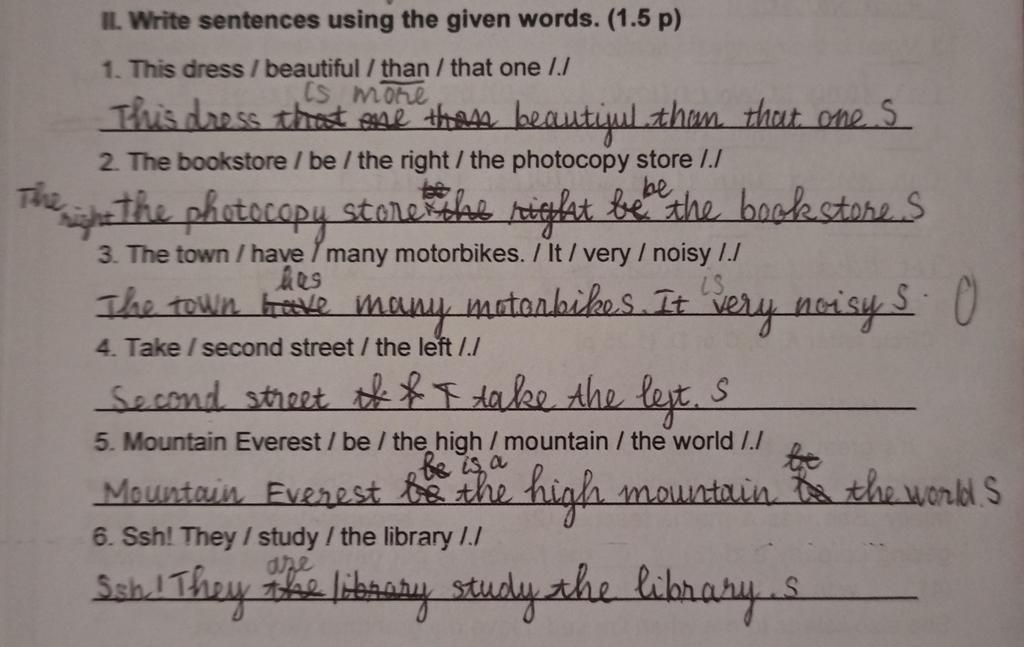 II. Write sentences using the given words. (1.5 p)
1. This dress / beautiful / than / that one /./
is more
This dress that one than beautiful than that one S
2. The bookstore / be / the right / the photocopy store /./
The right the photocopy store be the right be be the bookstore. S
3. The town / have / many motorbikes. / It / very / noisy /./
has is
The town have many motorbikes. It very noisy S 0
4. Take / second street / the left /./
Second street take the left. S
5. Mountain Everest / be / the high / mountain / the world /./
be is a be
Mountain Everest be the high mountain be the world. S
6. Ssh! They / study / the library /./
are
Ssh! They the library study the library. S